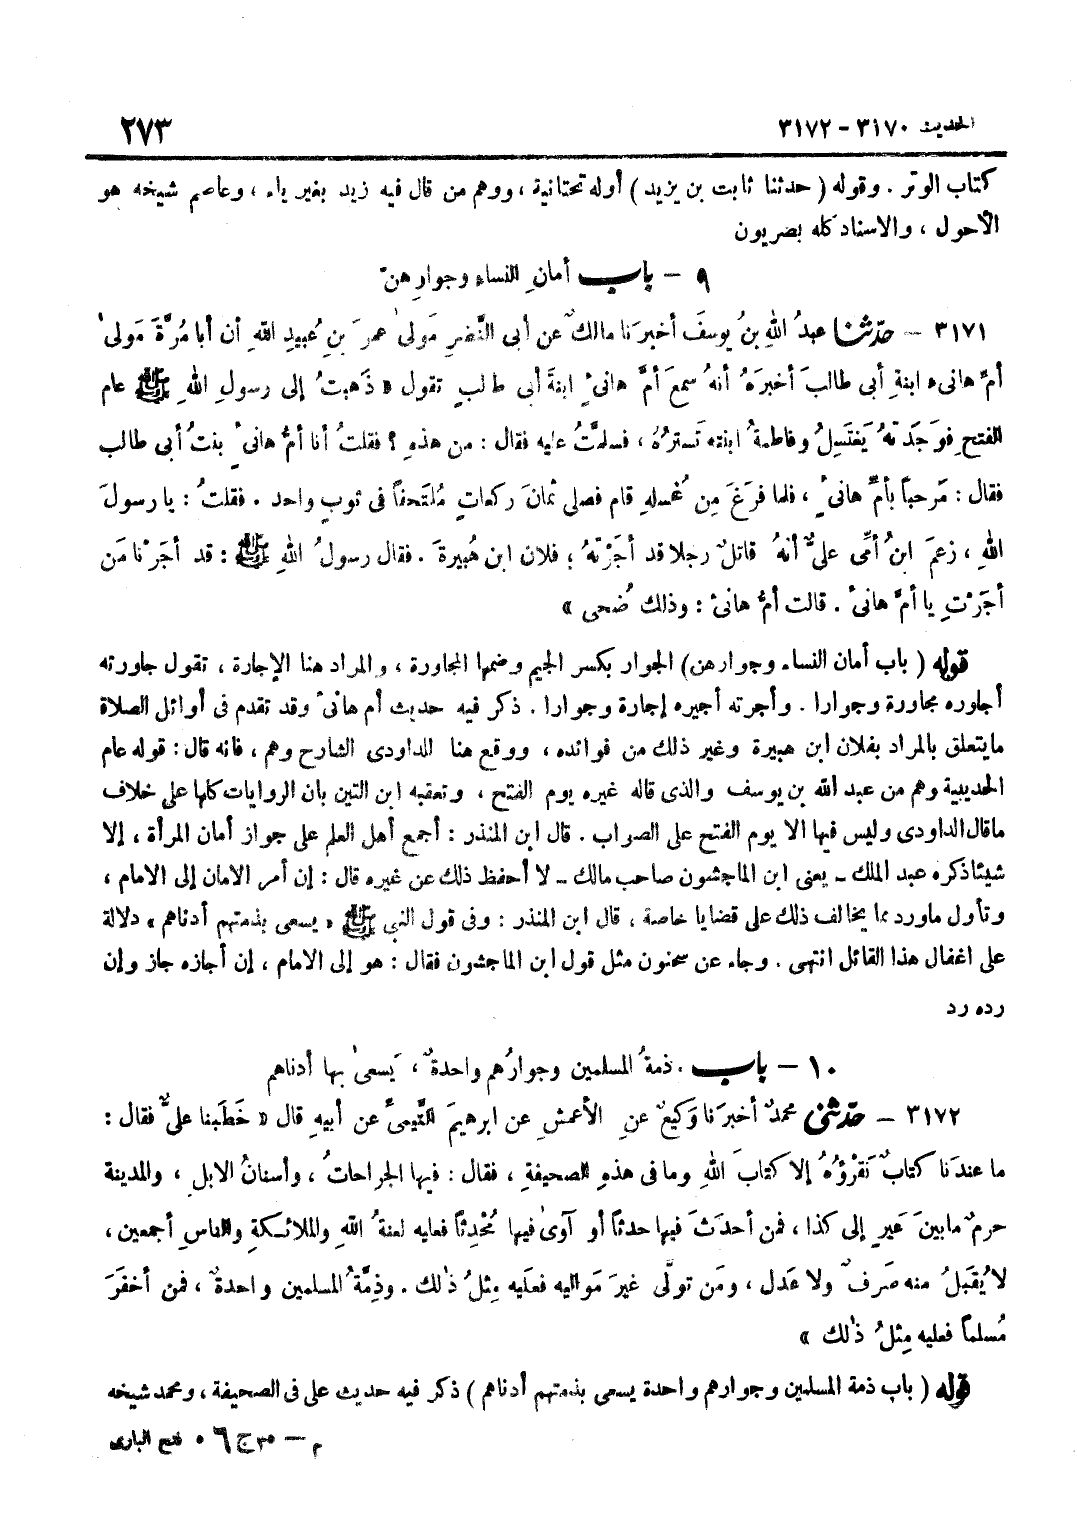 الحديث ٣١٧٠ - ٣١٧٢
٢٧٣
كتاب الوتر . وقوله ( حدثنا ثابت بن يزيد ) أوله تحتانية ، ووهم من قال فيه زيد بغير ياء ، وعاصم شيخه هو
الأحول ، والاسناد كله بصريون
٩ – باب أمانِ النساءِ وجوارِهنّ
٣١٧١ – حدّثنا عبدُ اللهِ بنُ يوسفَ أخبرَنا مالكٌ عن أبى النَّضرِ مَولىٰ عمرَ بنِ عُبيدِ اللهِ أن أبا مُرَّةَ مَولىٰ
أمِّ هانىء ابنةِ أبى طالبَ أخبرَهُ أنهُ سمعَ أمَّ هانىْءٍ ابنةَ أبى طالبٍ تقول « ذَهبتُ إلى رسولِ اللهِ ﷺ عام
الفتحِ فوَجَدتهُ يَغتَسِلُ وفاطمةُ ابنته تَسترُهُ ، فسلمَّتُ عليه فقال : من هذهِ ؟ فقلتُ أنا أمُّ هانىءٍ بنتُ أبى طالب
فقال : مَرحباً بأمِّ هانىءٍ ، فلما فرَغَ مِن غُسلهِ قام فصلى ثمانَ ركعاتٍ مُلتَحفاً فى ثوبٍ واحد . فقلتُ : يا رسولَ
اللهِ ، زعمَ ابنُ أمِّى علىٌّ أنهُ قاتلٌ رجلا قد أجَرْتهُ ؛ فلان ابن هُبيرةَ . فقال رسولُ اللهِ ﷺ : قد أجَرْنا مَن
أجَرْتِ يا أمَّ هانىْ . قالت أمُّ هانىْ : وذلك ضُحى »
قوله ( باب أمان النساء وجوارهن ) الجوار بكسر الجيم وضمها المجاورة ، والمراد هنا الإجارة ، تقول جاورته
أجاوره مجاورة وجوارا . وأجرته أجيره إجارة وجوارا . ذكر فيه حديث أم هانىْ وقد تقدم فى أوائل الصلاة
ما يتعلق بالمراد بفلان ابن هبيرة وغير ذلك من فوائده ، ووقع هنا للداودى الشارح وهم ، فانه قال : قوله عام
الحديبية وهم من عبد الله بن يوسف والذى قاله غيره يوم الفتح ، وتعقبه ابن التين بان الروايات كلها على خلاف
ماقال الداودى وليس فيها الا يوم الفتح على الصواب . قال ابن المنذر : أجمع أهل العلم على جواز أمان المرأة ، إلا
شيئا ذكره عبد الملك – يعنى ابن الماجشون صاحب مالك – لا أحفظ ذلك عن غيره قال : إن أمر الامان إلى الامام ،
وتأول ماورد مما يخالف ذلك على قضايا خاصة ، قال ابن المنذر : وفى قول النبي ﷺ « يسعى بذمتهم أدناهم » دلالة
على اغفال هذا القائل انتهى . وجاء عن سحنون مثل قول ابن الماجشون فقال : هو إلى الامام ، إن أجازه جاز وإن
رده رد
١٠ – باب . ذمةُ المسلمين وجوارُهم واحدةٌ ، يَسعىٰ بها أدناهم
٣١٧٢ – حدّثنى محمدٌ أخبرَنا وَكيعٌ عنِ الأعمشِ عن ابرهيمَ التَّيمىِّ عن أبيهِ قال « خَطَبنا علىٌّ فقال :
ما عندَنا كتابٌ نَقرؤُهُ إلا كتابَ اللهِ وما فى هذهِ الصحيفةِ ، فقال : فيها الجراحاتُ ، وأسنانُ الابل ، والمدينة
حرمٌ مابينَ عَيرٍ إلى كذا ، فمن أحدَثَ فيها حدثاً أو آوىٰ فيها مُحْدِثاً فعليه لعنةُ اللهِ والملائكةِ والناسِ أجمعين ،
لا يُقبَلُ منه صَرفٌ ولا عَدل ، ومَن تولّى غيرَ مَواليه فعلَيه مِثلُ ذٰلك . وذِمَّةُ المسلمين واحدةٌ ، فمن أخفَرَ
مُسلماً فعليه مِثلُ ذٰلك »
قوله ( باب ذمة المسلمين وجوارهم واحدة يسعى بذمتهم أدناهم ) ذكر فيه حديث على فى الصحيفة ، ومحمد شيخه
م – ٣٥ ج ٦ ٥ فتح البارى